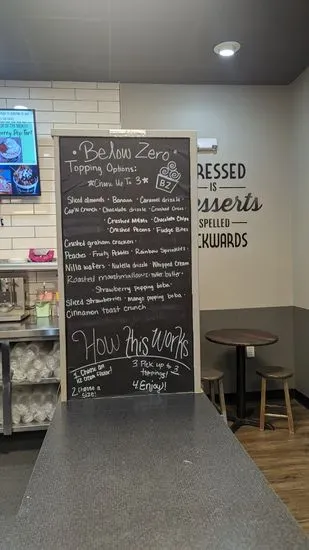 Below Zero
Topping Options:
*Choose Up To 3*
BZ
Sliced almonds · Banana · Caramel drizzle
Cap'N Crunch · Chocolate drizzle · Crushed Oreos
Crushed M&Ms · Chocolate Chips
Crushed Pecans · Fudge Bites
Crushed graham cracker
Peaches · Fruity Pebbles · Rainbow Sprinkles
Nilla wafers · Nutella drizzle · Whipped Cream
Roasted marshmallows · butter
Strawberry popping boba
Sliced strawberries · mango popping boba
Cinnamon toast crunch
How this works
1. Choose an
ice cream flavor!
2. Choose a
size!
3. Pick up to 3
toppings!
4. Enjoy!
RESSED
IS
sserts
SPELLED
CKWARDS